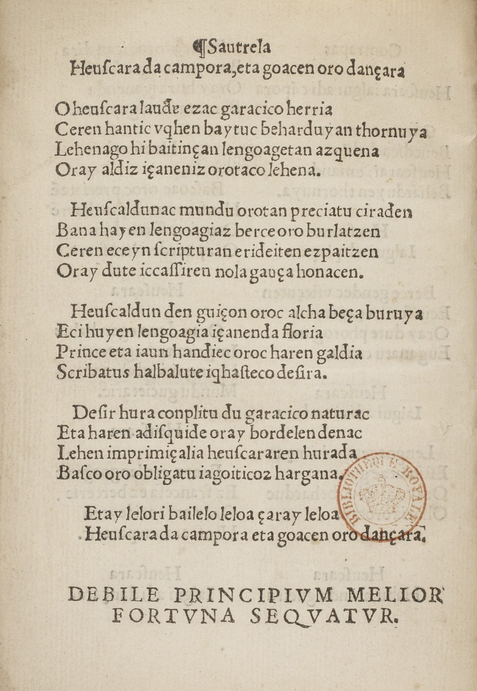 ¶Sautrela
Heuſcara da campora, eta goacen oro dançara
O heuſcara laude ezac garacico herria
Ceren hantic vqhen baytuc beharduyan thornuya
Lehenago hi baitinçan lengoagetan azquena
Oray aldiz içaneniz orotaco lehena.
Heuſcaldunac mundu orotan preciatu ciraden
Bana hayen lengoagiaz berce oro burlatzen
Ceren eceyn ſcripturan erideiten ezpaitzen
Oray dute iccaſſiren nola gauça honacen.
Heuſcaldun den guiçon oroc alcha beça buruya
Eci huyen lengoagia içanenda floria
Prince eta iaun handiec oroc haren galdia
Scribatus halbalute iqhaſteco deſira.
Deſir hura conplitu du garacico naturac
Eta haren adiſquide oray bordelen denac
Lehen imprimiçalia heuſcararen hurada
Baſco oro obligatu iagoiticoz hargana.
Etay lelori bailelo leloa çaray leloa
Heuſcara da campora eta goacen oro dançara.
BIBLIOTHEQUE ROYALE
DEBILE PRINCIPIVM MELIOR
FORTVNA SEQVATVR.